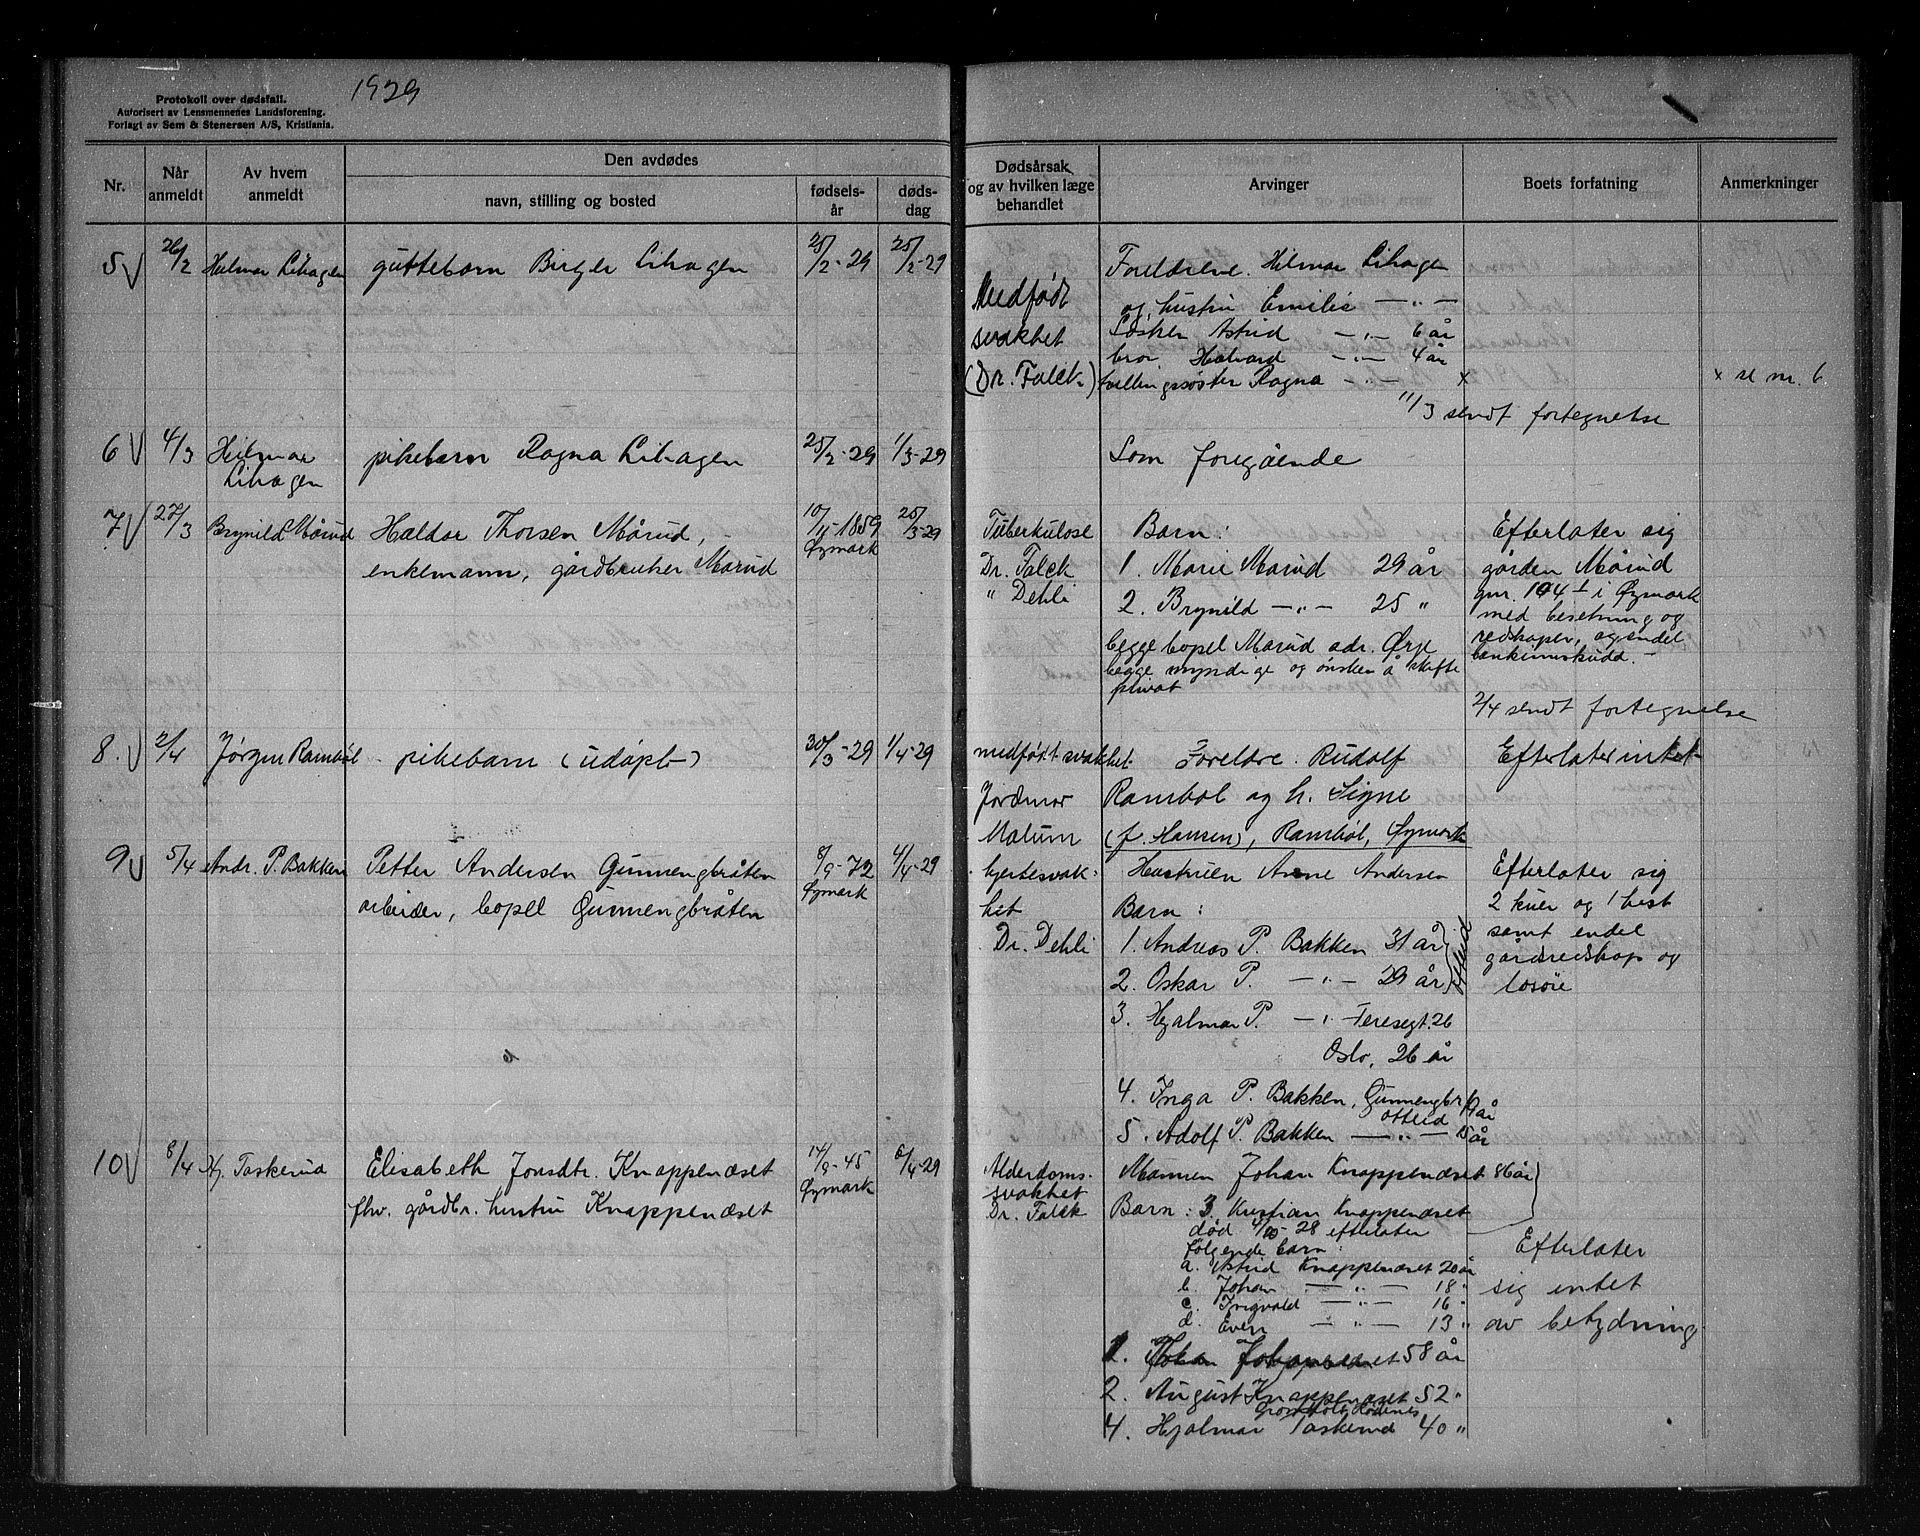 1929
Protokoll over dødsfall.
Autorisert av Lensmennenes Landsforening.
Forlagt av Sem & Stenersen A/S, Kristiania.
Nr.
Når anmeldt
Av hvem anmeldt
Den avdødes
navn, stilling og bosted
fødselsår
dødsdag
Dødsårsak og av hvilken læge behandlet
Arvinger
Boets forfatning
Anmerkninger
5 26/2 Hilmar Lihagen guttebarn Birger Lihagen 25/2-29 25/2-29
Medfødt
svakhet
(Dr. Falck)
Foreldrene. Hilmar Lihagen
og hustru Emilie — „ —
Søster Astrid — „ — 6 år
bror Halvard — „ — 4 år
tvillingsøster Ragna — „ — x
x se nr. 6
11/3 sendt fortegnelse
6 4/3 Hilmar Lihagen pikebarn Ragna Lihagen 25/2-29 1/3-29
Som foregående
7 27/3 Brynild Mårud Haldor Thorsen Mårud,
enkemann, gårdbruker Mårud
10/11-1859
Øymark
25/3-29
Tuberkulose
Dr. Falck
" Dehli
Barn:
1. Marie Mårud 29 år
2. Brynild — „ — 25 "
begge bopel Mårud adr. Ørje
begge myndige og ønsker å skifte
privat
Efterlater sig
gården Mårud
gnr. 104 i Øymark
med besetning og
redskaper, og endel
bankinnskudd. —
2/4 sendt fortegnelse
8. 2/4 Jørgen Rambøl pikebarn (udøpt) 30/3-29 1/4-29
medfødt svakhet.
Jordmor
Matum
Foreldre. Rudolf
Rambøl og h. Signe
(f. Hansen), Rambøl, Øymark
Efterlater intet
9 5/4 Andr. P. Bakken Petter Andersen Gunnengbråten
arbeider, bopel Gunnengbråten
8/9-72
Øymark
4/4-29
hjertesvak-
het
Dr. Dehli
Hustruen Anne Andersen
Barn:
1. Andreas P. Bakken 31 år
2. Oskar P. — „ — 29 år
3. Hjalmar P. — „ Teresegt. 26
Oslo, 26 år
4. Inga P. Bakken, Gunnengbr 19 år
5. Adolf P. Bakken — „ — 15 år
Efterlater sig
2 kuer og 1 hest
samt endel
gårdsredskap og
løsøre
10 8/4 Hj. Taskerud Elisabeth Jonsdtr. Knappenæset
fhv. gårdbr. hustru Knappenæset
14/9-45
Øymark
6/4-29
Alderdoms-
svakhet
Dr. Falck
Mannen Johan Knappenæset 86 år
Barn: 3. Kristian Knappenæset
død 4/10-28 efterlater
følgende barn:
a. Astrid Knappenæset 20 år
b. Johan — „ — 18 "
c. Ingvald — „ — 16 "
d. Even — „ — 13 "
1. Johan Johannæset 58 år
2. August Knappenæset 52 "
4. Hjalmar Taskerud 40 "
Efterlater
sig intet
av betydning